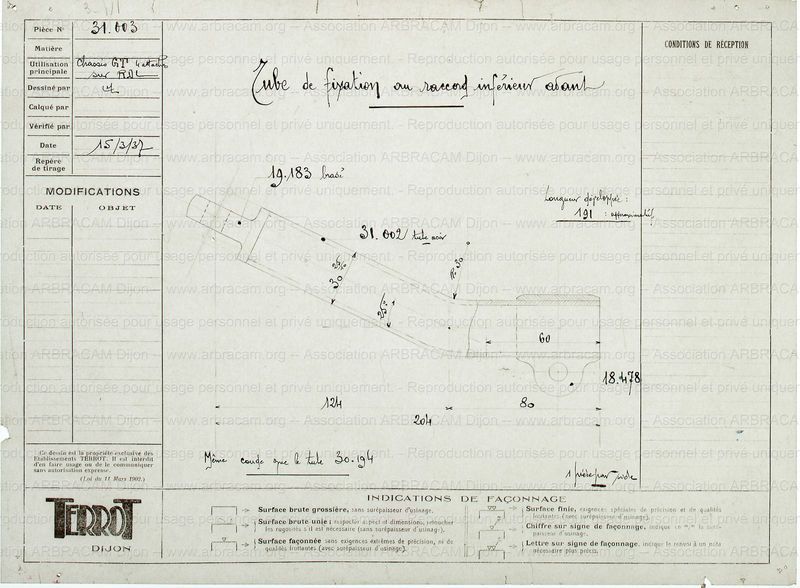 Pièce N° 31.003
Matière
Utilisation principale Chassis GT 4 attaches
sur RDL
Dessiné par
Calqué par
Vérifié par
Date 15/3/37
Repère de tirage
MODIFICATIONS
DATE OBJET
Tube de fixation au raccord inférieur avant
CONDITIONS DE RÉCEPTION
19.183 brasé
Longueur développée :
191 : approximatif
31.002 tube acier
30
R. 50
60
18.478
124
80
204
Même coude que le tube 30.194
1 pièce par side
Ce dessin est la propriété exclusive des
Etablissements TERROT. Il est interdit
d'en faire usage ou de le communiquer
sans autorisation expresse.
(Loi du 11 Mars 1902.)
TERROT
DIJON
INDICATIONS DE FAÇONNAGE
Surface brute grossière, sans surépaisseur d'usinage.
Surface brute unie : respecter aspect et dimensions, retoucher
les rugosités s'il est nécessaire (sans surépaisseur d'usinage).
Surface façonnée sans exigences extrêmes de précision, ni de
qualités frottantes (avec surépaisseur d'usinage).
Surface finie, exigences spéciales de précision et de qualités
frottantes (avec surépaisseur d'usinage).
Chiffre sur signe de façonnage, indique en m/m la surépaisseur d'usinage.
Lettre sur signe de façonnage, indique le renvoi à une note
nécessaire plus précise.
www.arbracam.org – Association ARBRACAM Dijon – www.arbracam.org – Association ARBRACAM Dijon
Reproduction autorisée pour usage personnel et privé uniquement. - Reproduction autorisée pour usage personnel et privé uniquement.